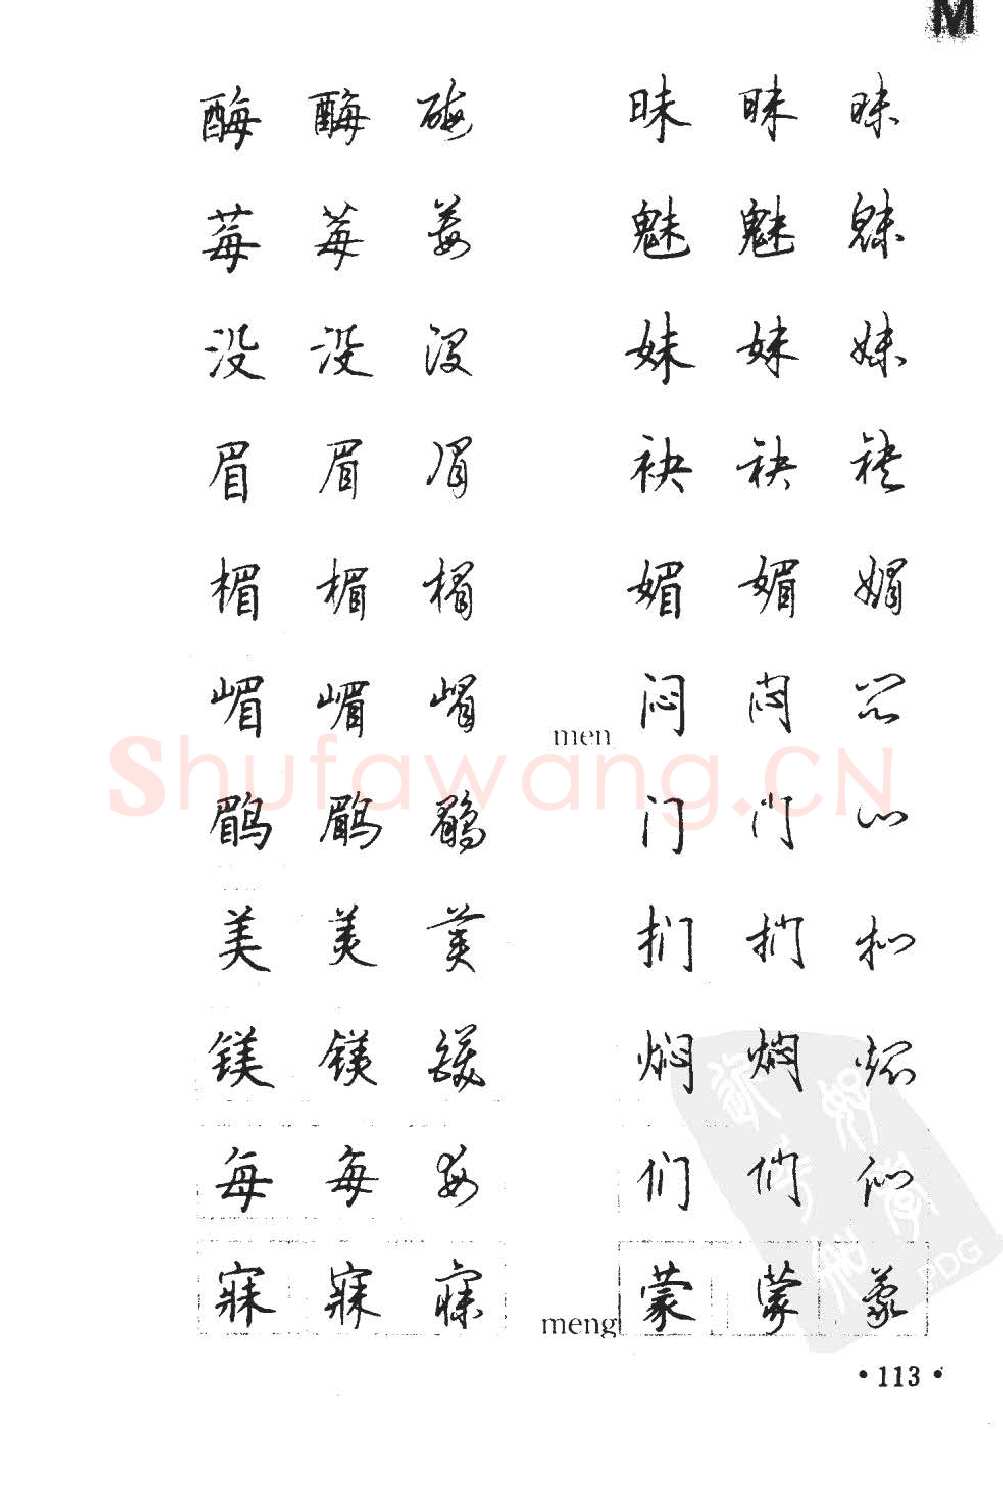 M
酶 酶 酶 昧 昧 昧
莓 莓 莓 魅 魅 魅
没 没 没 妹 妹 妹
眉 眉 眉 袂 袂 袂
楣 楣 楣 媚 媚 媚
嵋 嵋 嵋 men 闷 闷 闷
Shufawang.CN
鹛 鹛 鹛 门 门 门
美 美 美 扪 扪 扪
镁 镁 镁 焖 焖 焖
每 每 每 们 们 们
寐 寐 寐 meng 蒙 蒙 蒙
PDG
·113·